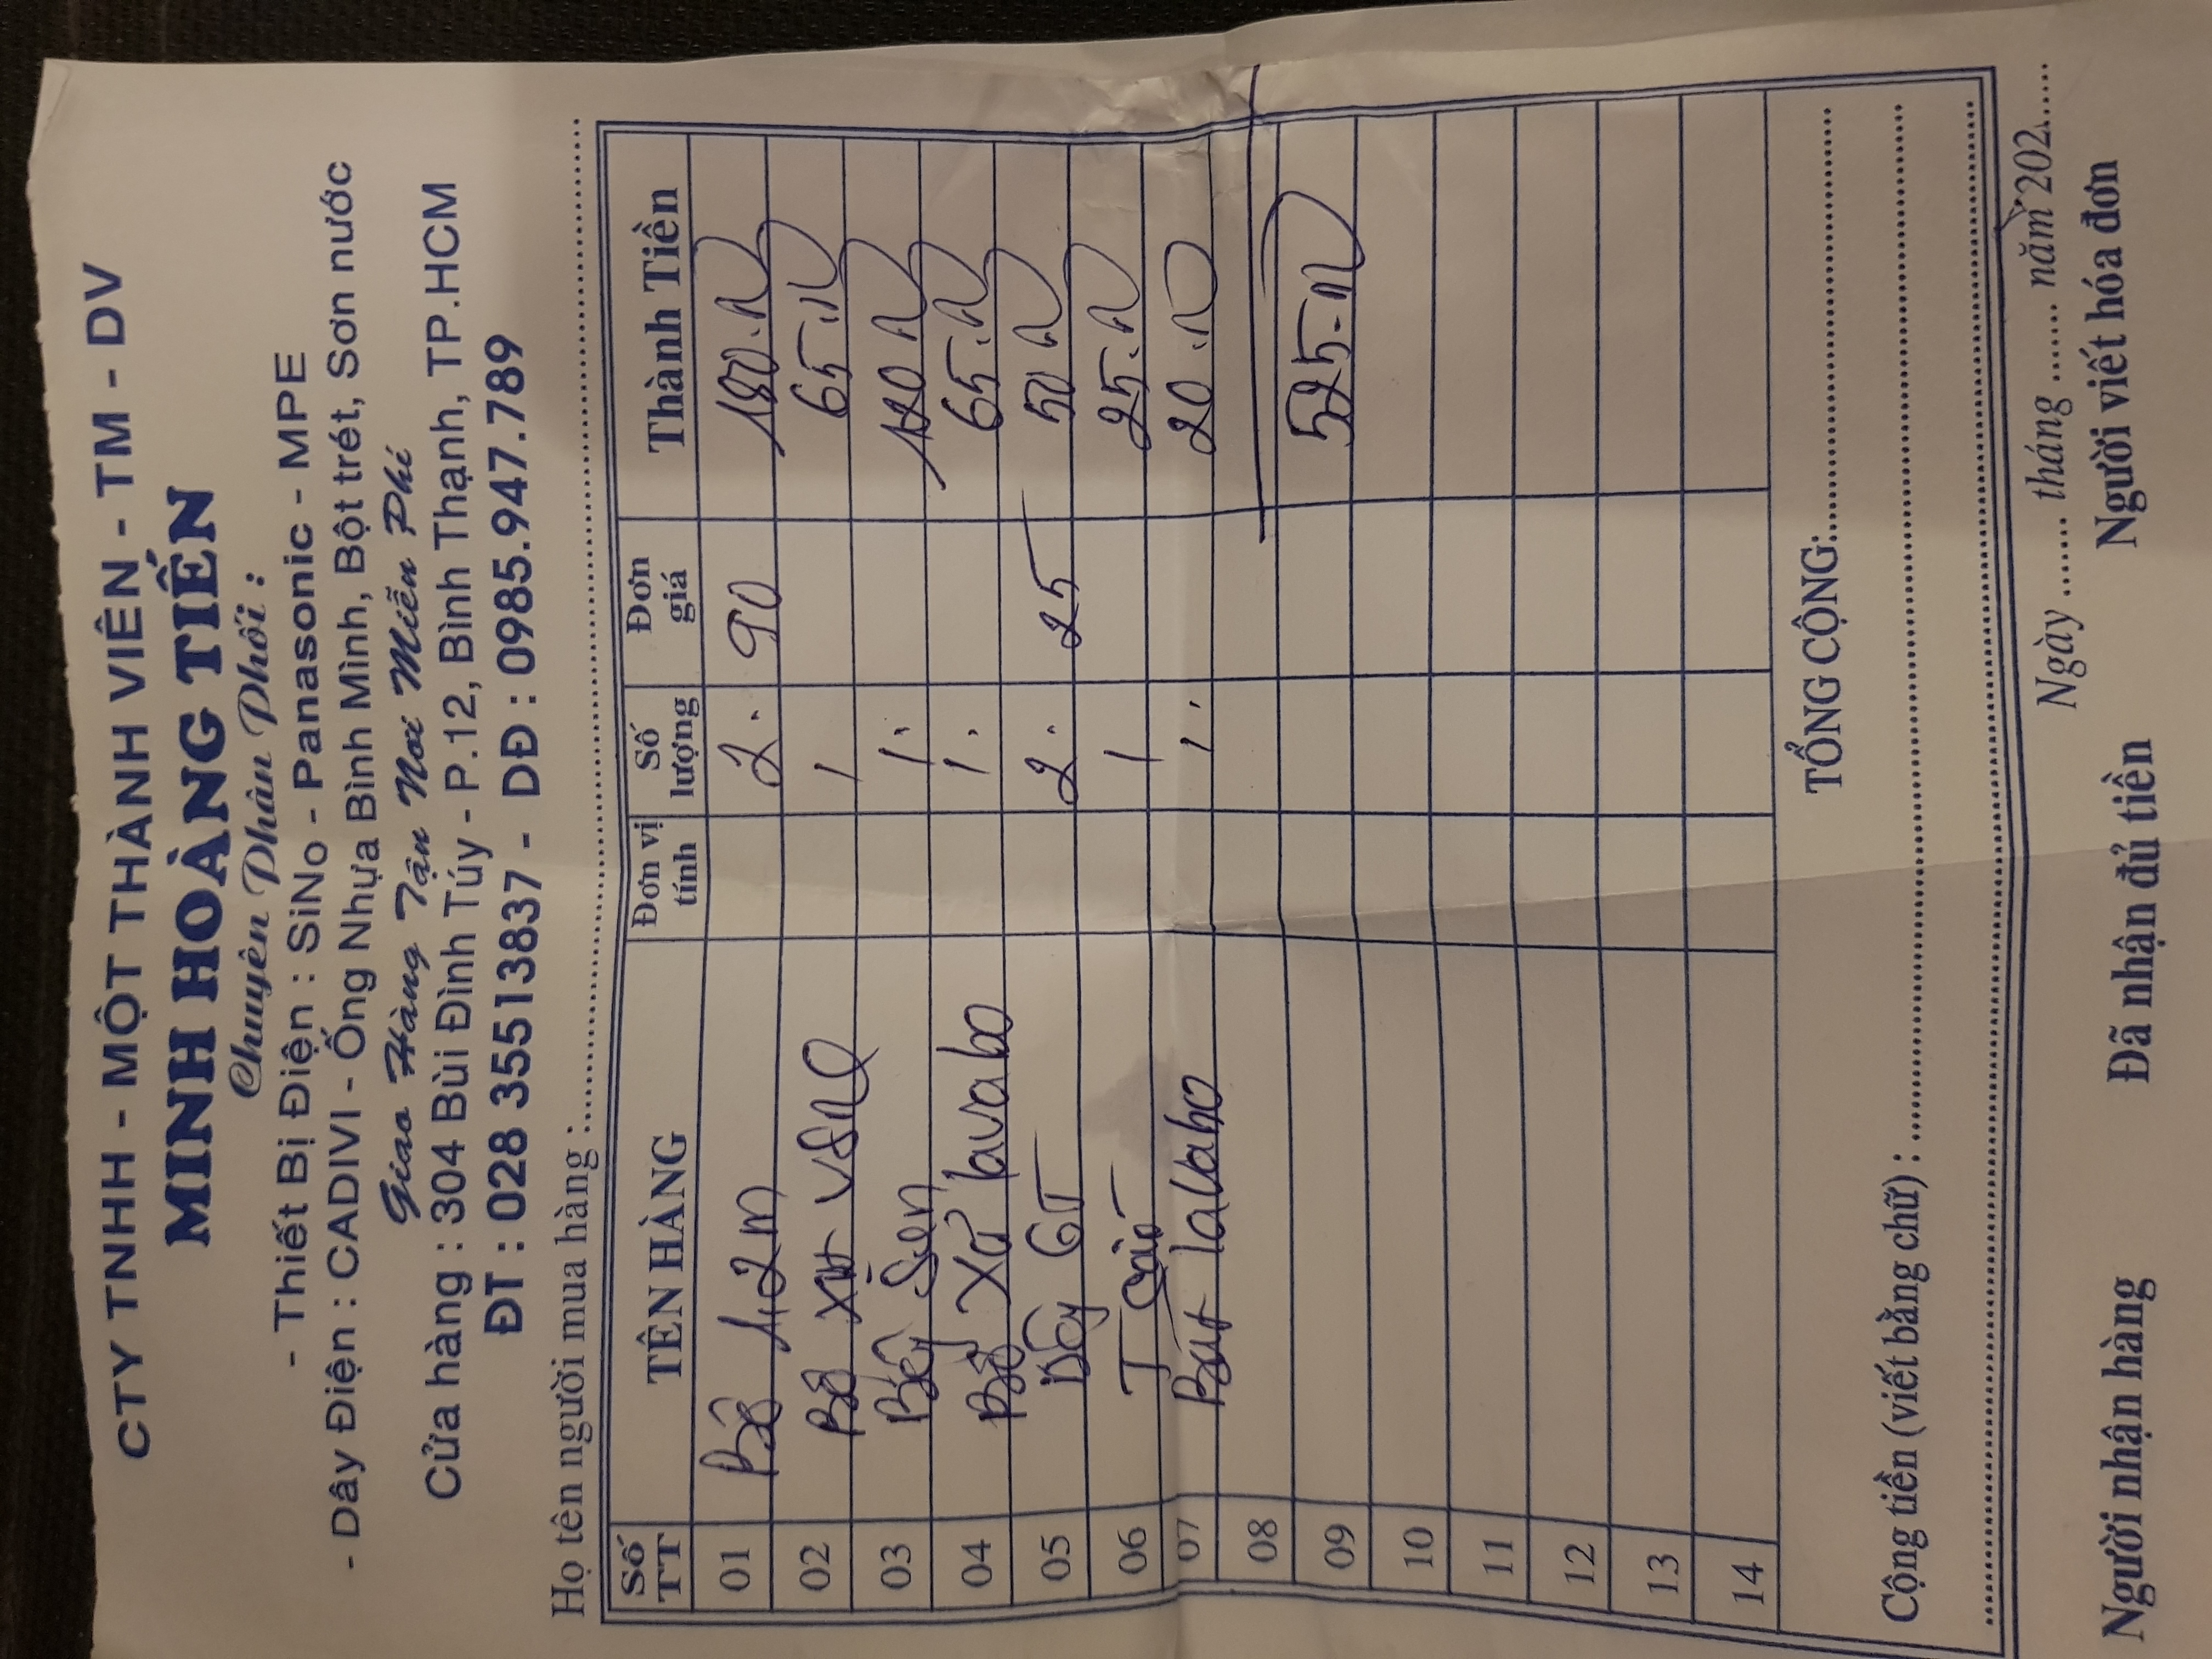 CTY TNHH - MỘT THÀNH VIÊN - TM - DV
MINH HOÀNG TIẾN
Chuyên Phân Phối :
- Thiết Bị Điện : SiNo - Panasonic - MPE
- Dây Điện : CADIVI - Ống Nhựa Bình Minh, Bột trét, Sơn nước
Giao Hàng Tận Nơi Miễn Phí
Cửa hàng : 304 Bùi Đình Túy - P.12, Bình Thạnh, TP.HCM
ĐT : 028 35513837 - DĐ : 0985.947.789
Họ tên người mua hàng :
Số TT TÊN HÀNG Đơn vị tính Số lượng Đơn giá Thành Tiền
01 Bộ 1.2m 2. 90 180.n
02 Bộ xịt VSN 1 65.n
03 Dây Sen 1. 120 n
04 Bộ Xả lavabo 1. 65.n
05 Dây GT 2. 25 50 n
06 T 1 25.n
07 Bát laVabo 1. 20.n
08
09 525-n
10
11
12
13
14
TỔNG CỘNG:
Cộng tiền (viết bằng chữ) :
Ngày ....... tháng ....... năm 202......
Người nhận hàng Đã nhận đủ tiền Người viết hóa đơn